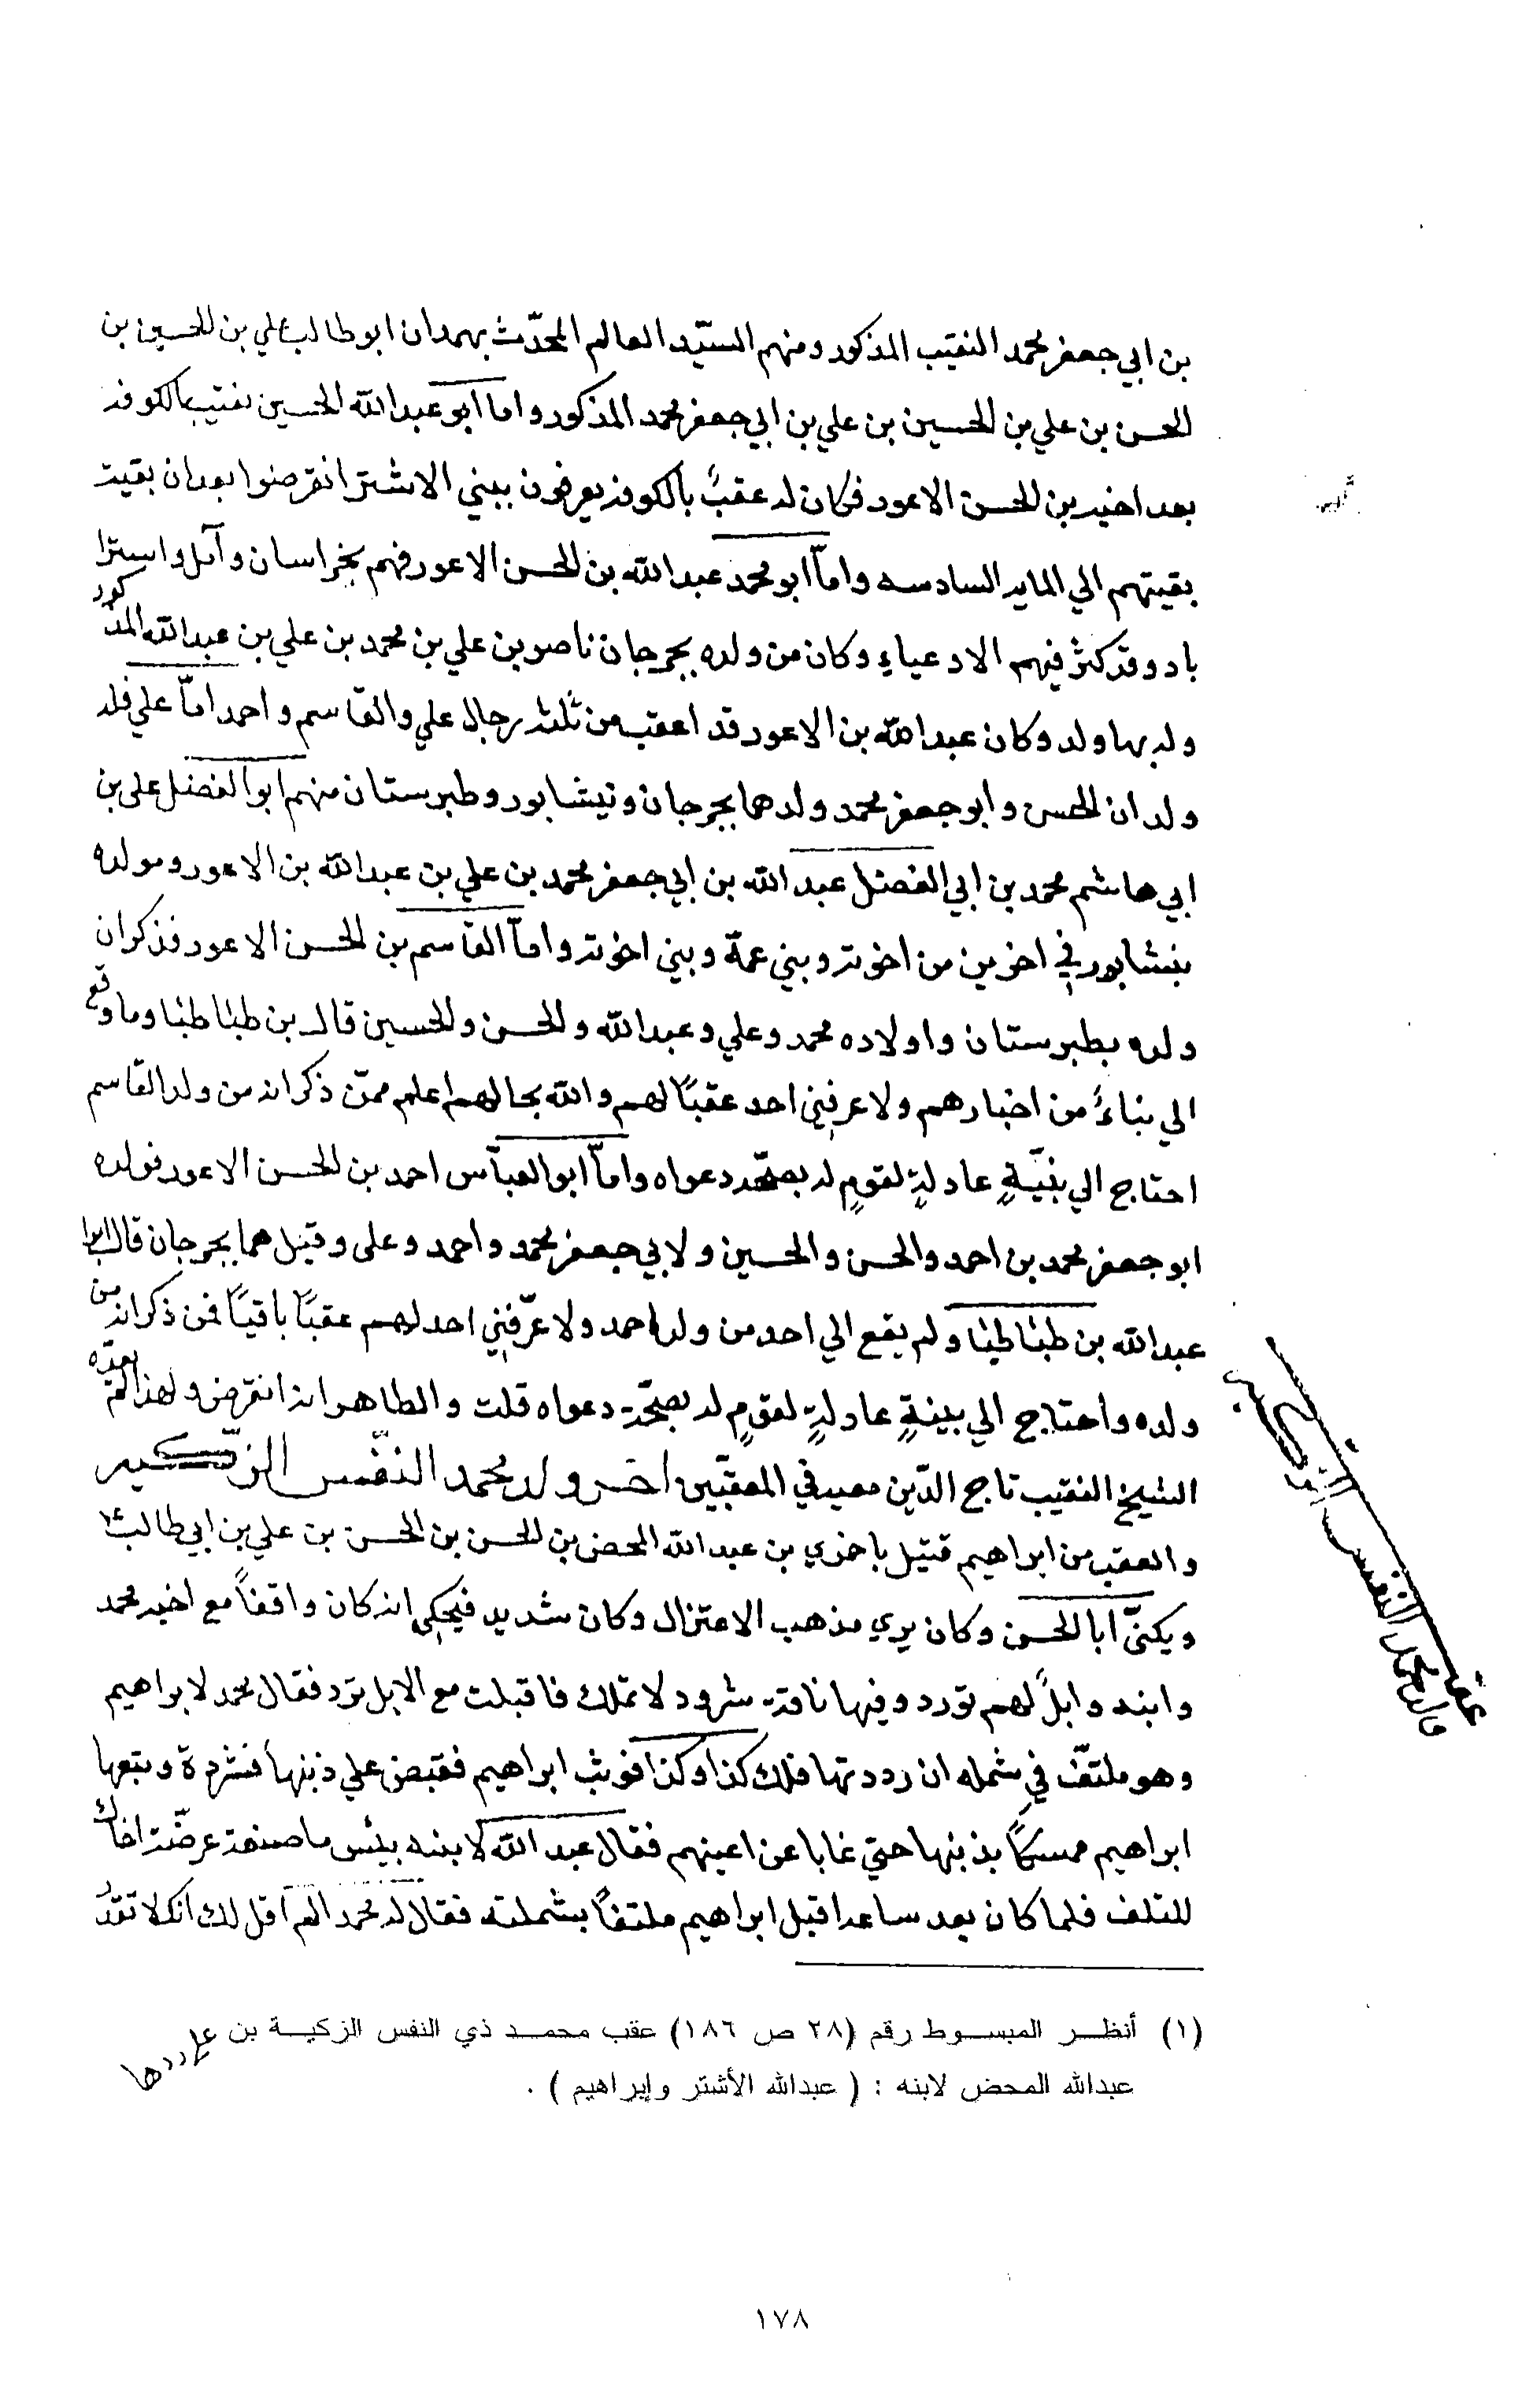 بن ابي جعفر محمد النقيب المذكور ومنهم السيّد العالم المحدّث بهمدان ابو طالب علي بن الحسين بن
الحسن بن علي بن الحسين بن علي بن ابي جعفر محمد المذكور واما ابو عبد الله الحسين نقيب بالكوفه
بعد اخيه بن الحسن الاعور فكان له عقبٌ بالكوفه يعرفون ببني الاشتر انقرضوا بعد ان بقيت
بقيتهم الي المايه السادسه واماّ ابو محمد عبد الله بن الحسن الاعور فهم بخراسان وآمل واسترا
باد وقد كثر فيهم الادعياء وكان من ولده بجرجان ناصر بن علي بن محمد بن علي بن عبد الله المذكور
وله بها ولد وكان عبد الله بن الاعور قد اعقب من ثلثه رجال علي والقاسم واحمد اماّ علي فله
ولدان الحسن وابو جعفر محمد ولدهما بجرجان ونيشابور وطبرستان منهم ابو الفضل علي بن
ابي هاشم محمد بن ابي الفضل عبد الله بن ابي جعفر محمد بن علي بن عبد الله بن الاعور ومولده
بنشابور في اخرين من اخوته وبني عمة وبني اخوته واماّ القاسم بن الحسن الاعور فذكر ان
ولده بطبرستان واولاده محمد وعلي وعبد الله والحسن والحسين قال بن طباطبا وما وقع
الي بناءً من اخبارهم ولا عرفني احد عقبًا لهم والله بحالهم اعلم ممّن ذكر انه من ولد القاسم
احتاج الي بنيّةٍ عادلةٍ لقومٍ له بصحّه دعواه واماّ ابو العبّاس احمد بن الحسن الاعور فولده
ابو جعفر محمد بن احمد والحسن والحسين ولابي جعفر محمد واحمد وعلى وقيل هما بجرجان قال ابو
عبد الله بن طباطبا ولم يقع الي احد من ولد احمد ولا عرّفني احد لهم عقبًا باقيًا فمن ذكر انه من
ولده واحتاج الي بينةٍ عادلةٍ لقومٍ له بصحّة دعواه قلت والظاهر انه انقرض ولهذا لم يعدّه
الشيخ النقيب تاج الدّين معيه في المعقبّين اخر ولد محمد النفّس الزّكيه
والعقب من ابراهيم قتيل باخمري بن عبد الله المحض بن الحسن بن الحسن بن علي بن ابي طالب ع
ويكنّى ابا الحسن وكان يري مذهب الاعتزال وكان شديد فيحكي انه كان واقفاً مع اخيه محمد
وابنه وابلٌ لهم تورد وفيها ناقة شرود لا تملك فاقبلت مع الابل ترد فقال محمد لابراهيم
وهو ملتفّ في شمله ان رددتها فلك كذا وكذا فوثب ابراهيم فقبض علي ذنبها فشردة وتبعها
ابراهيم ممسكًا بذنبها حتي غابا عن اعينهم فقال عبد الله لابنه بيئس ما صنعة عرضّت اخاك
للتلف فلما كان بعد ساعه اقبل ابراهيم ملتفاً بشملته فقال له محمد الم آقل لك انك لا تقدر
عقب محمد النفس الزكيه
(١) أنظر المبسوط رقم (٢٨ ص ١٨٦) عقب محمد ذي النفس الزكية بن
عبدالله المحض لابنه : ( عبدالله الأشتر وإبراهيم ) .
١٧٨